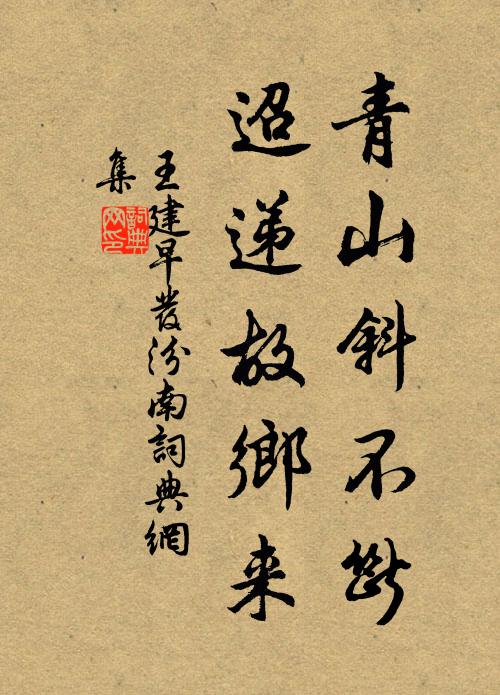 青山斜不斷
迢递故鄉来
王建早發汾南詞典網
集
詞典网印